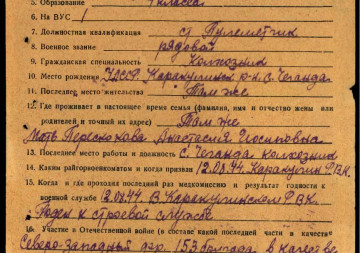 5. Образование 4 класса
6. На ВУС 1
7. Должностная квалификация ст. Пулеметчик
8. Военное звание рядовой
9. Гражданская специальность Колхозник
10. Место рождения УАССР. Каракулинск р-н. с. Чеганда
11. Последнее место жительства Там же
12. Где проживает в настоящее время семья (фамилия, имя и отчество жены или
родителей и точный их адрес) Там же
Мать Анастасия Иосиповна
13. Последнее место работы и должность с. Чеганда колхозник
14. Каким райгорвоенкоматом и когда призван 12.08.44. Каракулин РВК.
15. Когда и где проходил последний раз медкомиссию и результат годности к
военной службе 12.08.44. В Каракулинском РВК
Годен к строевой службе
16. Участие в Отечественной войне (в составе какой последней части и в качестве
Северо-Западный фр. 153 бригада в качестве